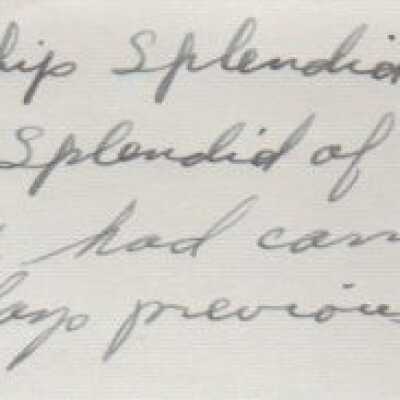 hip Splendid
Splendid of
had cam
days previous